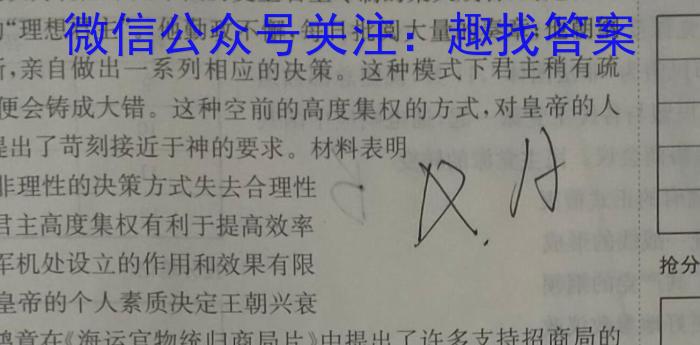 微信公众号关注：趣找答案
"理想
，亲自做出一系列相应的决策。这种模式下君主稍有疏
便会铸成大错。这种空前的高度集权的方式，对皇帝的人
提出了苛刻接近于神的要求。材料表明
非理性的决策方式失去合理性
君主高度集权有利于提高效率
军机处设立的作用和效果有限
皇帝的个人素质决定王朝兴衰
鸿章在《海运官物统归商局片》中提出了许多支持招商局的
抢分